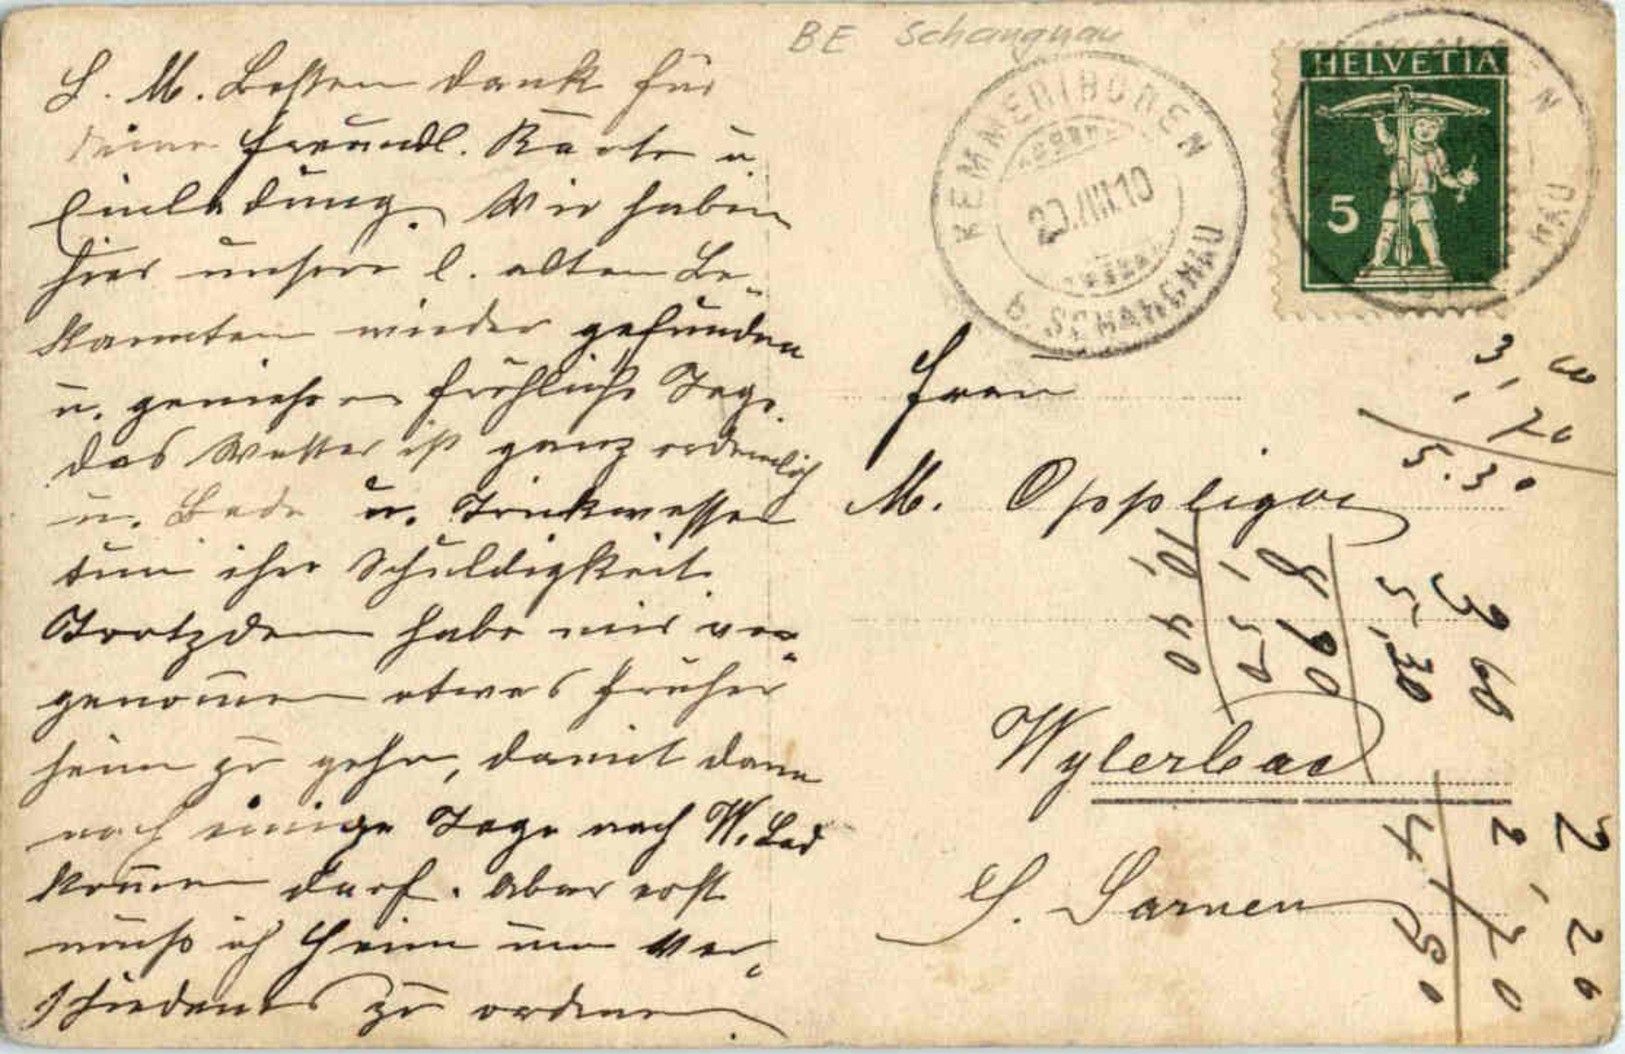 BE Schangnau
L. M. Besten Dank für
Deine freundl. Karte u.
Einladung. Wir haben
hier unsere l. alten Be-
kannten wieder gefunden
u. geniessen fröhliche Tage.
das Wetter ist ganz ordentlich
u. Bade u. Trinkwasser
tun ihre Schuldigkeit.
Trotzdem habe mir vor-
genommen etwas früher
heim zu gehn, damit dann
noch einige Tage nach W. Bad
kommen darf. Aber erst
muss ich heim um Ver-
schiedenes zu ordnen.
KEMMERIBODEN
b. SCHANGNAU
HELVETIA
5
Frau
M. Oppliger
Wylerbad
b. Sarnen
3,60
1,70
5.30
3 60
5,30
8 90
1,50
10,40
2,20
2,70
4,90